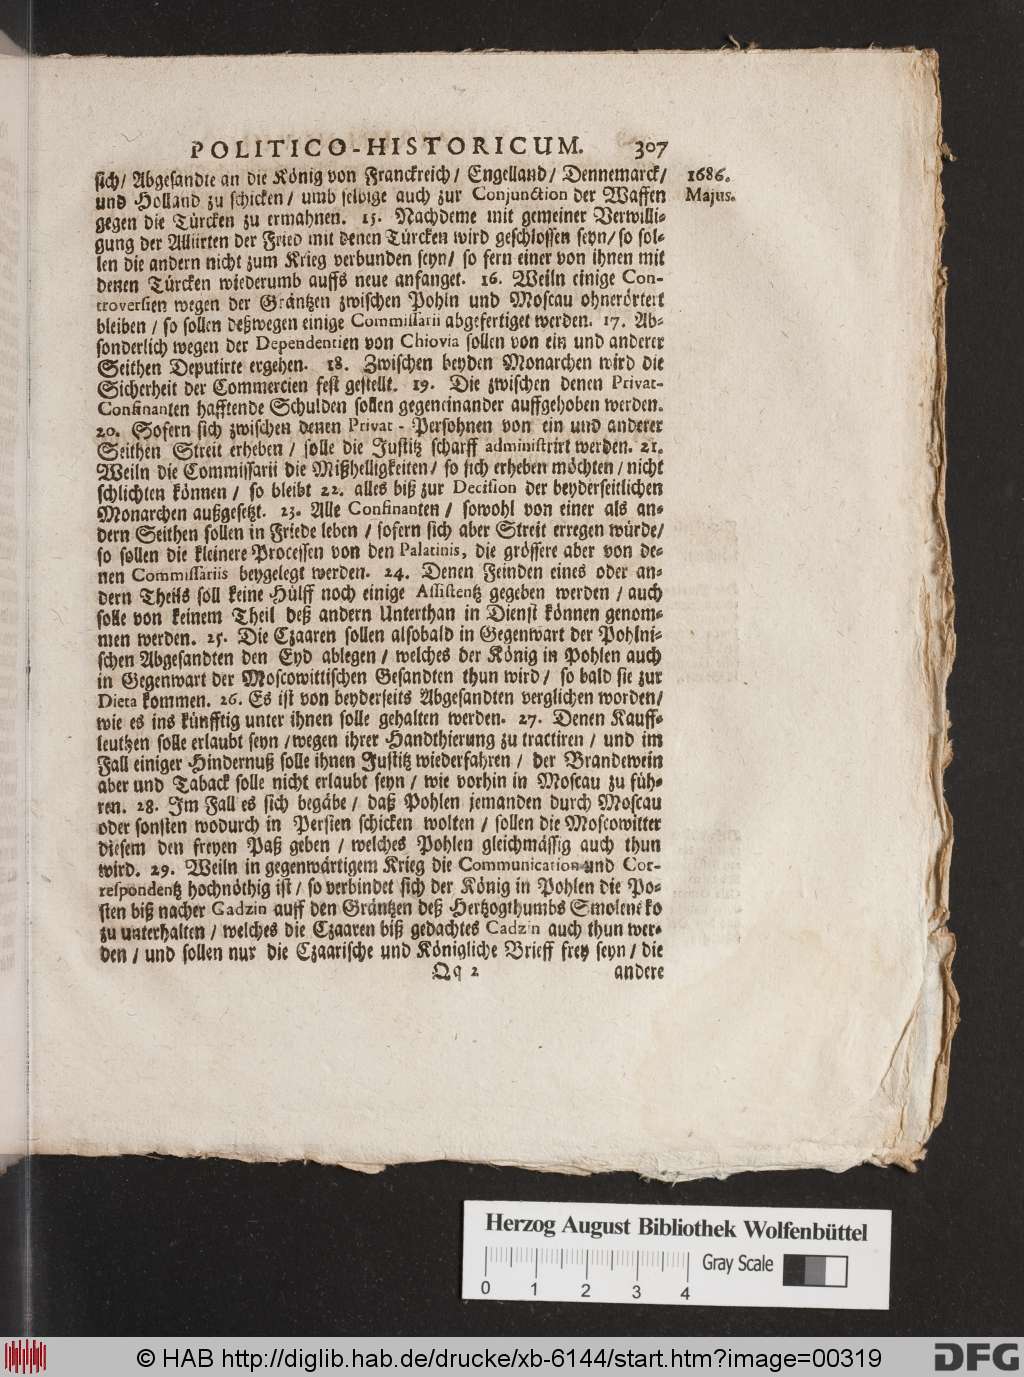 POLITICO-HISTORICUM. 307
sich/ Abgesandte an die König von Franckreich/ Engelland/ Dennemarck/ 1686.
und Holland zu schicken/ umb selbige auch zur Conjunction der Waffen Majus.
gegen die Türcken zu ermahnen. 15. Nachdeme mit gemeiner Verwilli-
gung der Alliirten der Fried mit denen Türcken wird geschlossen seyn/ so sol-
len die andern nicht zum Krieg verbunden seyn/ so fern einer von ihnen mit
denen Türcken wiederumb auffs neue anfanget. 16. Weiln einige Con-
troversien wegen der Gräntzen zwischen Pohln und Moscau ohnerörtert
bleiben / so sollen deßwegen einige Commissarii abgefertiget werden. 17. Ab-
sonderlich wegen der Dependentien von Chiovia sollen von ein und anderer
Seithen Deputirte ergehen. 18. Zwischen beyden Monarchen wird die
Sicherheit der Commercien fest gestellt. 19. Die zwischen denen Privat-
Confinanten hafftende Schulden sollen gegeneinander auffgehoben werden.
20. Sofern sich zwischen denen Privat - Persohnen von ein und anderer
Seithen Streit erheben / solle die Justitz scharff administrirt werden. 21.
Weiln die Commissarii die Mißhelligkeiten/ so sich erheben möchten/ nicht
schlichten können / so bleibt 22. alles biß zur Decision der beyderseitlichen
Monarchen außgesetzt. 23. Alle Confinanten / sowohl von einer als an-
dern Seithen sollen in Friede leben / sofern sich aber Streit erregen würde/
so sollen die kleinere Processen von den Palatinis, die grössere aber von de-
nen Commissariis beygelegt werden. 24. Denen Feinden eines oder an-
dern Theils soll keine Hülff noch einige Assistentz gegeben werden / auch
solle von keinem Theil deß andern Unterthan in Dienst können genom-
men werden. 25. Die Czaaren sollen alsobald in Gegenwart der Pohlni-
schen Abgesandten den Eyd ablegen / welches der König in Pohlen auch
in Gegenwart der Moscowittischen Gesandten thun wird / so bald sie zur
Dieta kommen. 26. Es ist von beyderseits Abgesandten verglichen worden/
wie es ins künfftig unter ihnen solle gehalten werden. 27. Denen Kauff-
leuthen solle erlaubt seyn /wegen ihrer Handthierung zu tractiren / und im
Fall einiger Hindernuß solle ihnen Justitz wiederfahren / der Brandewein
aber und Taback solle nicht erlaubt seyn / wie vorhin in Moscau zu füh-
ren. 28. Im Fall es sich begäbe / daß Pohlen jemanden durch Moscau
oder sonsten wodurch in Persien schicken wolten / sollen die Moscowitter
diesem den freyen Paß geben / welches Pohlen gleichmässig auch thun
wird. 29. Weiln in gegenwärtigem Krieg die Communication und Cor-
respondentz hochnöthig ist / so verbindet sich der König in Pohlen die Po-
sten biß nacher Gadzin auff den Gräntzen deß Hertzogthumbs Smolensko
zu unterhalten / welches die Czaaren biß gedachtes Cadzin auch thun wer-
den / und sollen nur die Czaarische und Königliche Brieff frey seyn / die
Qq 2 andere
Herzog August Bibliothek Wolfenbüttel
Gray Scale
0 1 2 3 4
© HAB http://diglib.hab.de/drucke/xb-6144/start.htm?image=00319
DFG